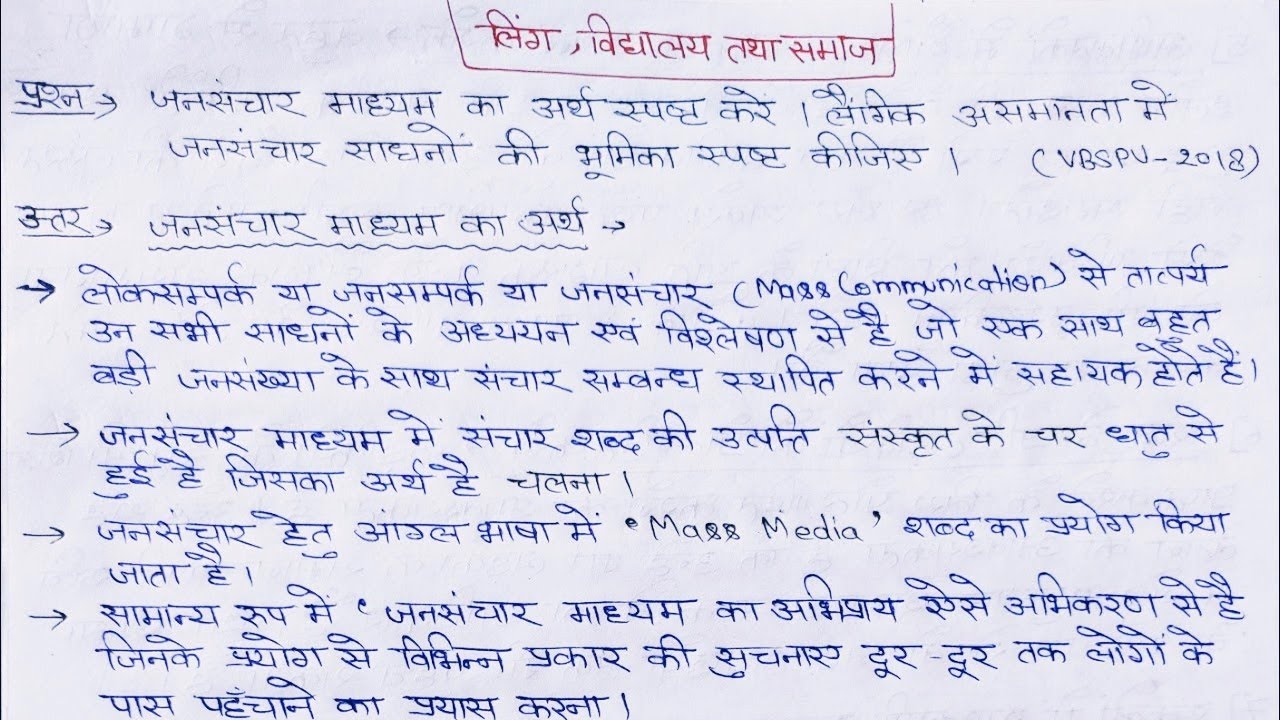 लिंग, विद्यालय तथा समाज
प्रश्न → जनसंचार माध्यम का अर्थ स्पष्ट करें । लैंगिक असमानता में
जनसंचार साधनों की भूमिका स्पष्ट कीजिए । (VBSPU-2018)
उत्तर → जनसंचार माध्यम का अर्थ →
→ लोकसम्पर्क या जनसम्पर्क या जनसंचार (Mass Communication) से तात्पर्य
उन सभी साधनों के अध्ययन एवं विश्लेषण से है जो एक साथ बहुत
बड़ी जनसंख्या के साथ संचार सम्बन्ध स्थापित करने में सहायक होते हैं।
→ जनसंचार माध्यम में संचार शब्द की उत्पत्ति संस्कृत के चर धातु से
हुई है जिसका अर्थ है चलना ।
→ जनसंचार हेतु आंग्ल भाषा में 'Mass Media' शब्द का प्रयोग किया
जाता है।
→ सामान्य रूप में ' जनसंचार माध्यम का अभिप्राय ऐसे अभिकरण से है
जिनके प्रयोग से विभिन्न प्रकार की सुचनाए दूर-दूर तक लोगों के
पास पहुँचाने का प्रयास करना ।